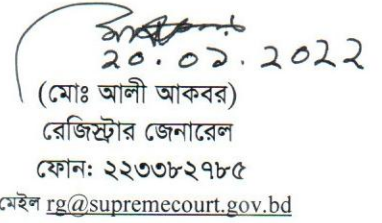 ২০.০১.২০২২
(মোঃ আলী আকবর)
রেজিস্ট্রার জেনারেল
ফোন: ২২৩৩৮২৭৮৫
মেইল rg@supremecourt.gov.bd